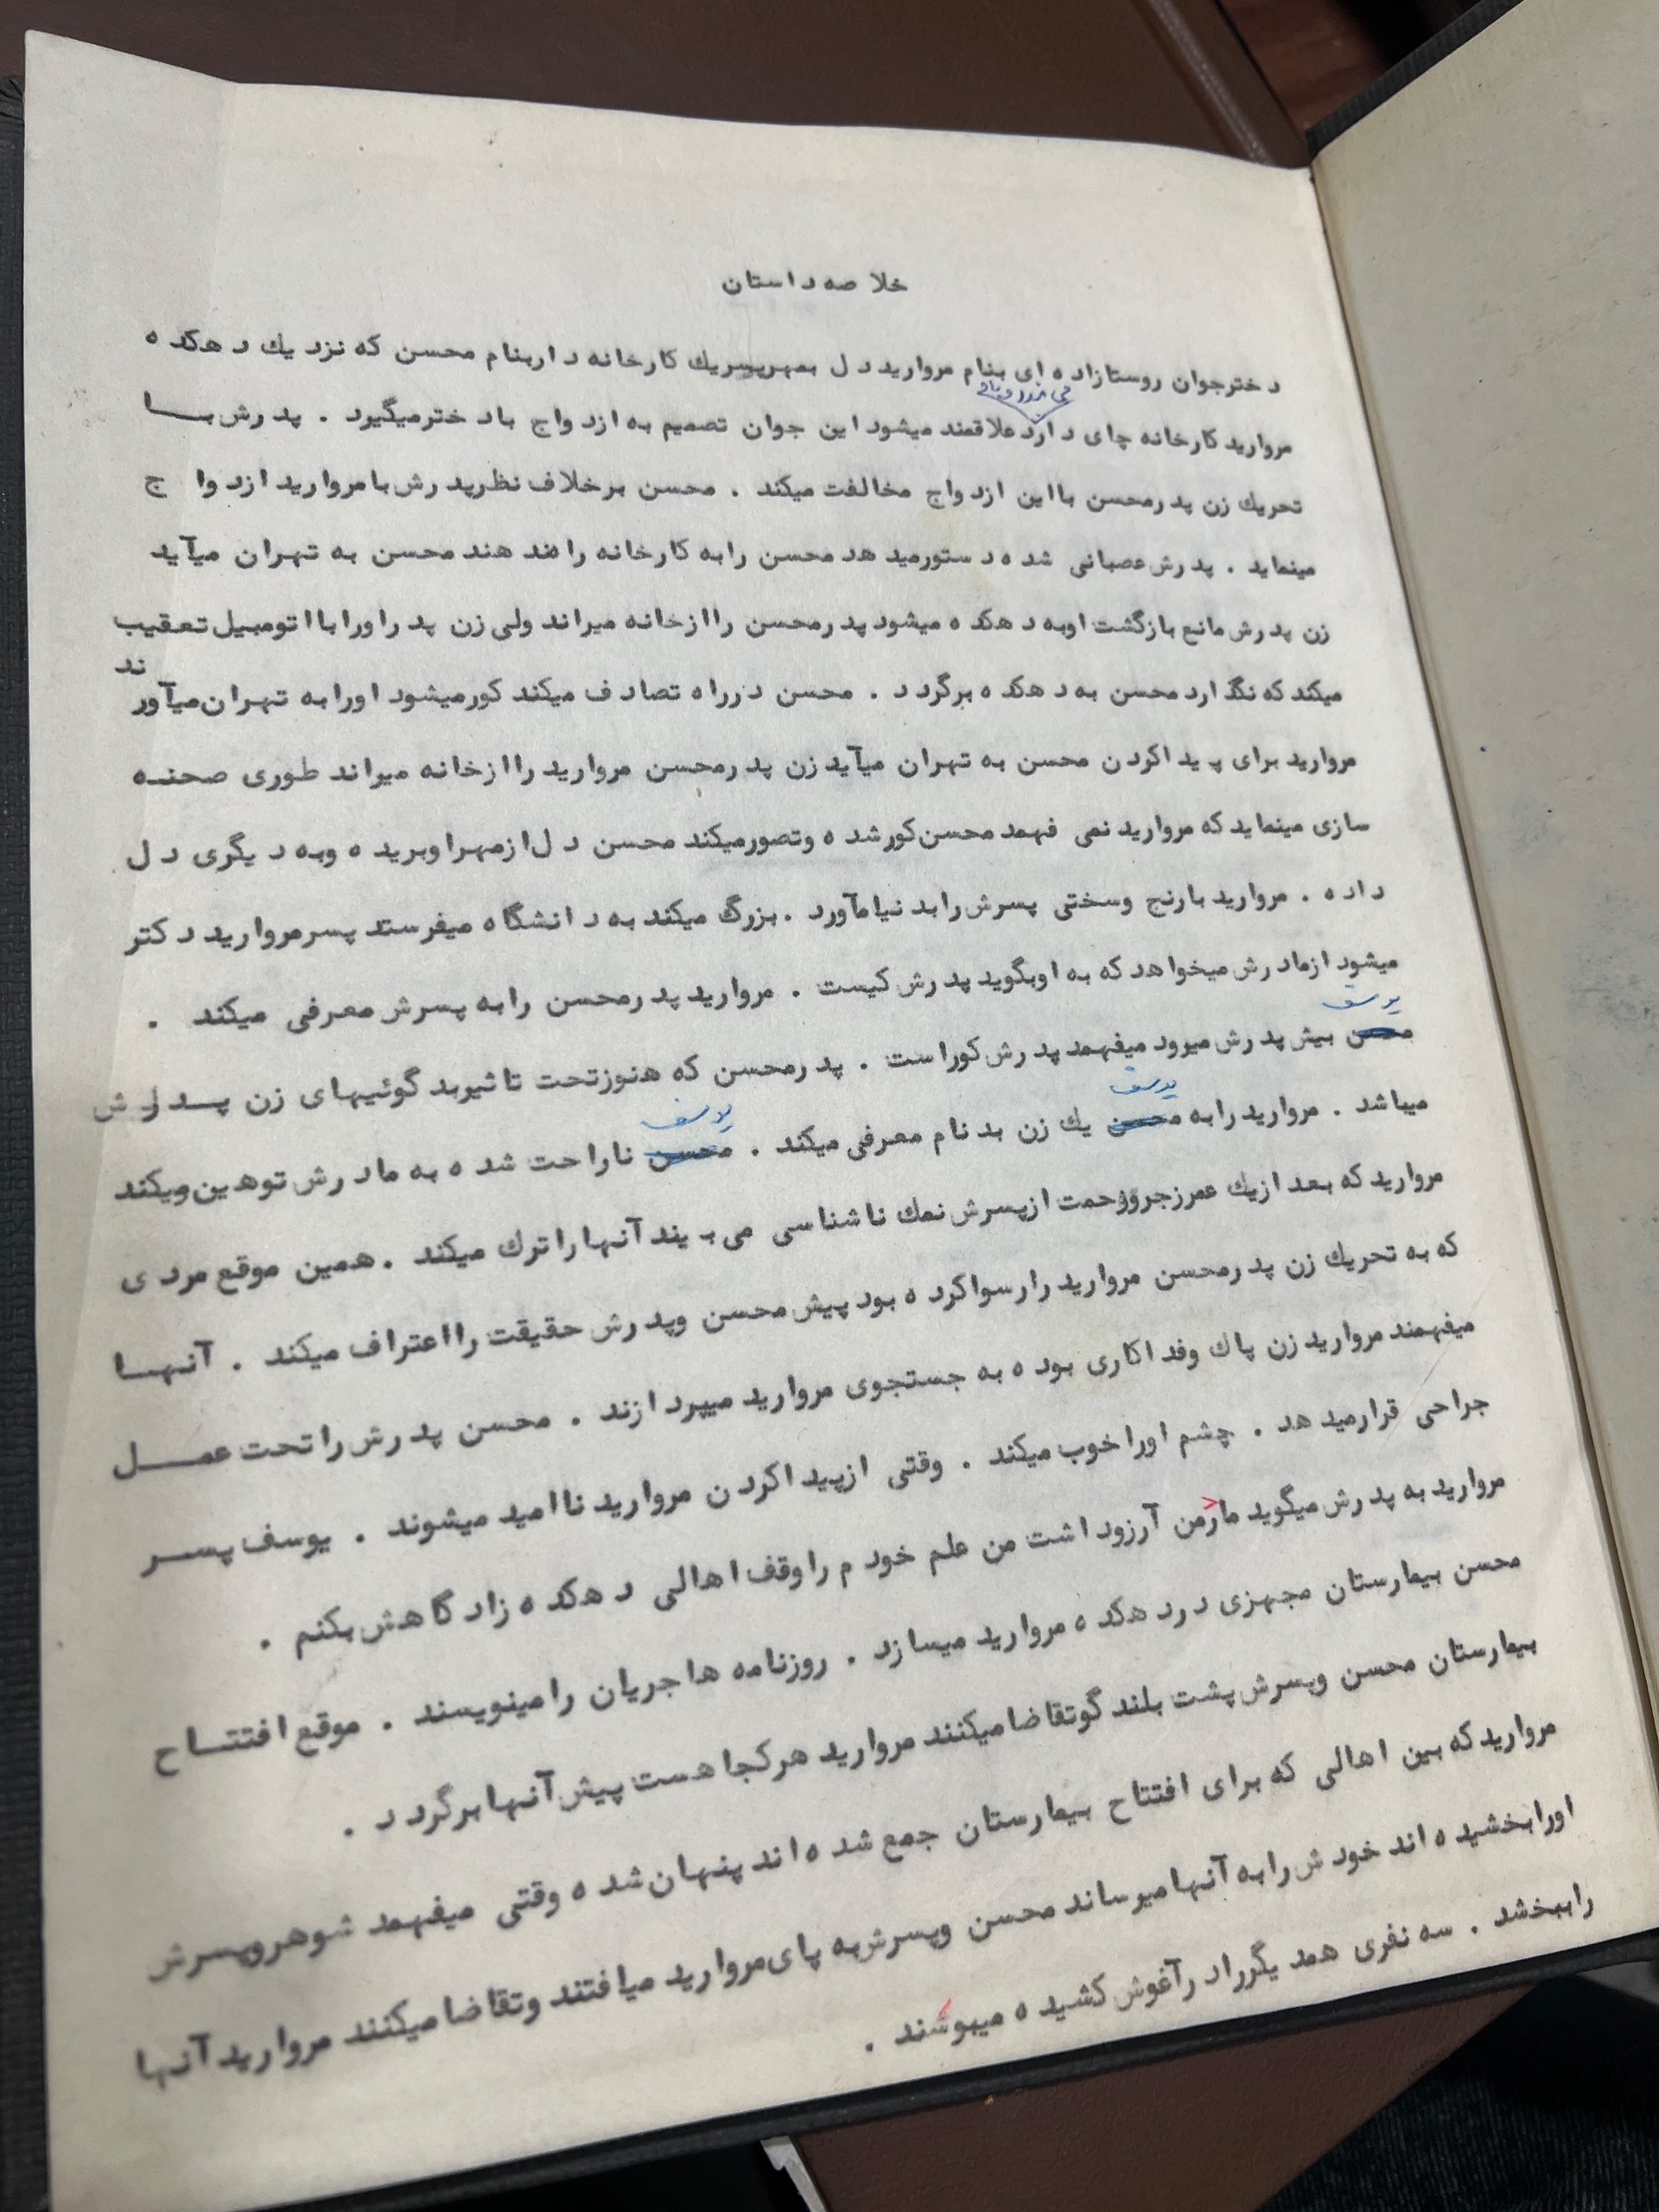 خلاصه داستان
دخترجوان روستازاده ای بنام مروارید دل بمهرپسریك کارخانه داربنام محسن که نزدیك دهکده
مروارید کارخانه چای دارد علاقمند میشود این جوان تصمیم به ازدواج بادخترمیگیرد . پدرش بـــا
تحریك زن پدرمحسن بااین ازدواج مخالفت میکند . محسن برخلاف نظرپدرش بامروارید ازدوا ج
مینماید . پدرش عصبانی شده دستورمیدهد محسن رابه کارخانه راهند هند محسن به تهران میآید
زن پدرش مانع بازگشت اوبه دهکده میشود پدرمحسن راازخانه میراند ولی زن پدراورابااتومبیل تعقیب
میکند که نگذارد محسن به دهکده برگردد . محسن درراه تصادف میکند کورمیشود اورابه تهران میآورند
مروارید برای پیداکردن محسن به تهران میآید زن پدرمحسن مروارید راازخانه میراند طوری صحنـه
سازی مینماید که مروارید نمی فهمد محسن کورشده وتصورمیکند محسن دل ازمهراوبریده وبه دیگری دل
داده . مروارید بارنج وسختی پسرش رابدنیامآورد . بزرگ میکند به دانشگاه میفرستد پسرمروارید دکتر
میشود ازمادرش میخواهد که به اوبگوید پدرش کیست . مروارید پدرمحسن رابه پسرش معرفی میکند .
یوسف
محسن بیش پدرش میرود میفهمد پدرش کوراست . پدرمحسن که هنوزتحت تاثیربدگوئیهای زن پـــدرش
یوسف
میباشد . مروارید رابه محسن یك زن بدنام معرفی میکند . محسن ناراحت شده به مادرش توهین میکند
یوسف
مروارید که بعد ازیك عمرزجروزحمت ازپسرش نمك ناشناسی می بیند آنهاراترك میکند . همین موقع مردی
که به تحریك زن پدرمحسن مروارید رارسواکرده بود پیش محسن وپدرش حقیقت رااعتراف میکند . آنهـــا
میفهمند مروارید زن پاك وفداکاری بوده به جستجوی مروارید میپردازند . محسن پدرش راتحت عمـــل
جراحی قرارمیدهد . چشم اوراخوب میکند . وقتی ازپیداکردن مروارید ناامید میشوند . یوسف پســـر
مروارید به پدرش میگوید مارمن آرزوداشت من علم خودم راوقف اهالی دهکده زادگاهش بکنم .
محسن بیمارستان مجهزی دردهکده مروارید میسازد . روزنامه هاجریان رامینویسند . موقع افتتـــاح
بیمارستان محسن وپسرش پشت بلندگوتقاضامیکنند مروارید هرکجاهست پیش آنهابرگردد .
مروارید که بین اهالی که برای افتتاح بیمارستان جمع شده اند پنهان شده وقتی میفهمد شوهروپسرش
اورابخشیده اند خودش رابه آنهامیرساند محسن وپسرش به پای مروارید میافتند وتقاضامیکنند مروارید آنها
راببخشد . سه نفری همدیگررادرآغوش کشیده میبوسند .